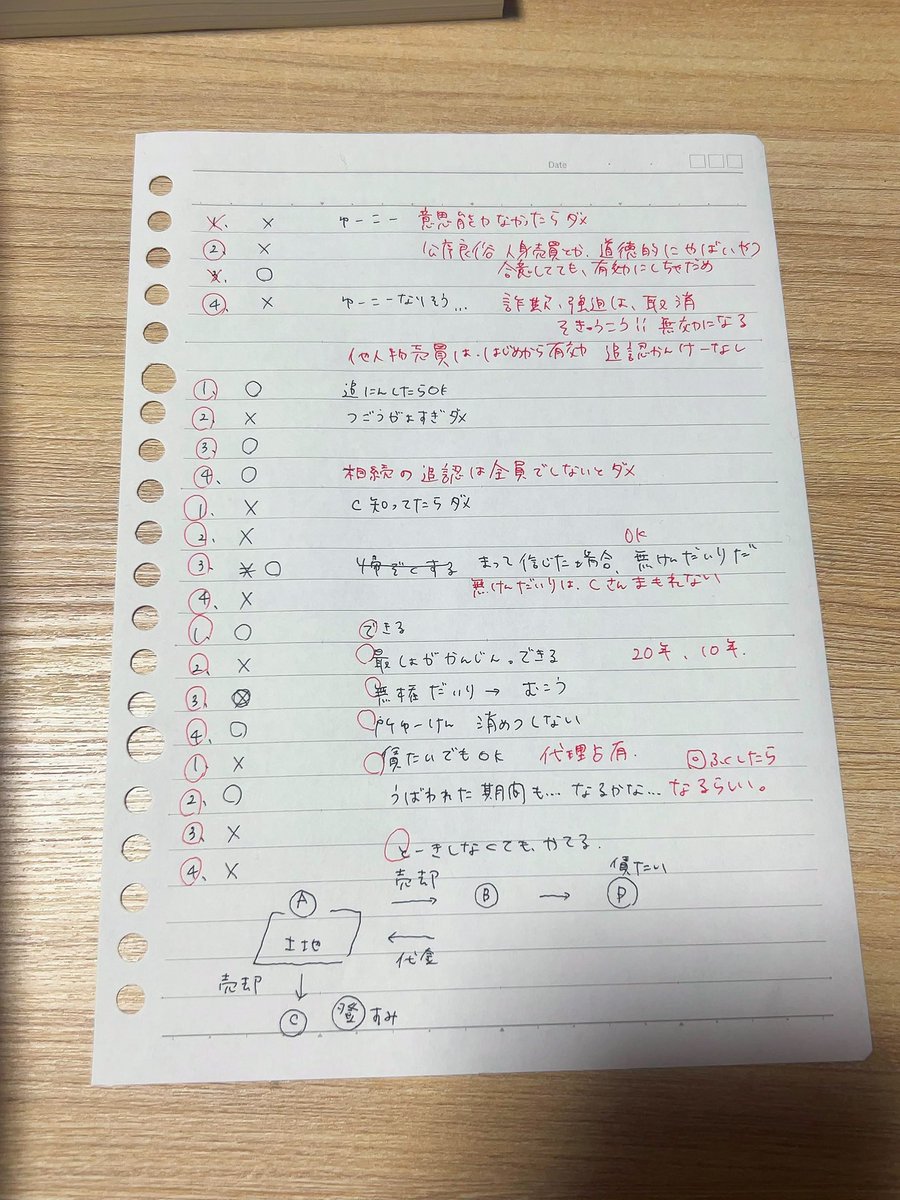 Date
1. × ゆーこー 意思能力なかったらダメ
2. × 公序良俗 人身売買とか、道徳的にやばいやつ
3. ○ 合意してても、有効にしちゃだめ
4. × ゆーこーなりそう… 詐欺、強迫は、取消
そきゅうこう!! 無効になる
他人物売買は、はじめから有効 追認かんけーなし
1. ○ 追にんしたらOK
2. × つごうがよすぎダメ
3. ○
4. ○ 相続の追認は全員でしないとダメ
1. × C 知ってたらダメ
2. × OK
3. ○ まって信じた場合、無けんだいりだ
4. × 無けんだいりは、Cさんまもれない
1. ○ できる
2. × 最しょがかんじん。できる 20年、10年.
3. 無権だいり→ むこう
4. ○ 消めつしない
1. × 賃たいでもOK 代理占有. 回ふくしたら
2. ○ うばわれた期間も… なるかな… なるらしい。
3. ×
とーきしなくても、かてる.
4. ×
売却 賃たい
A → B → D
土地 ←
代金
売却 ↓
C 登 ずみ